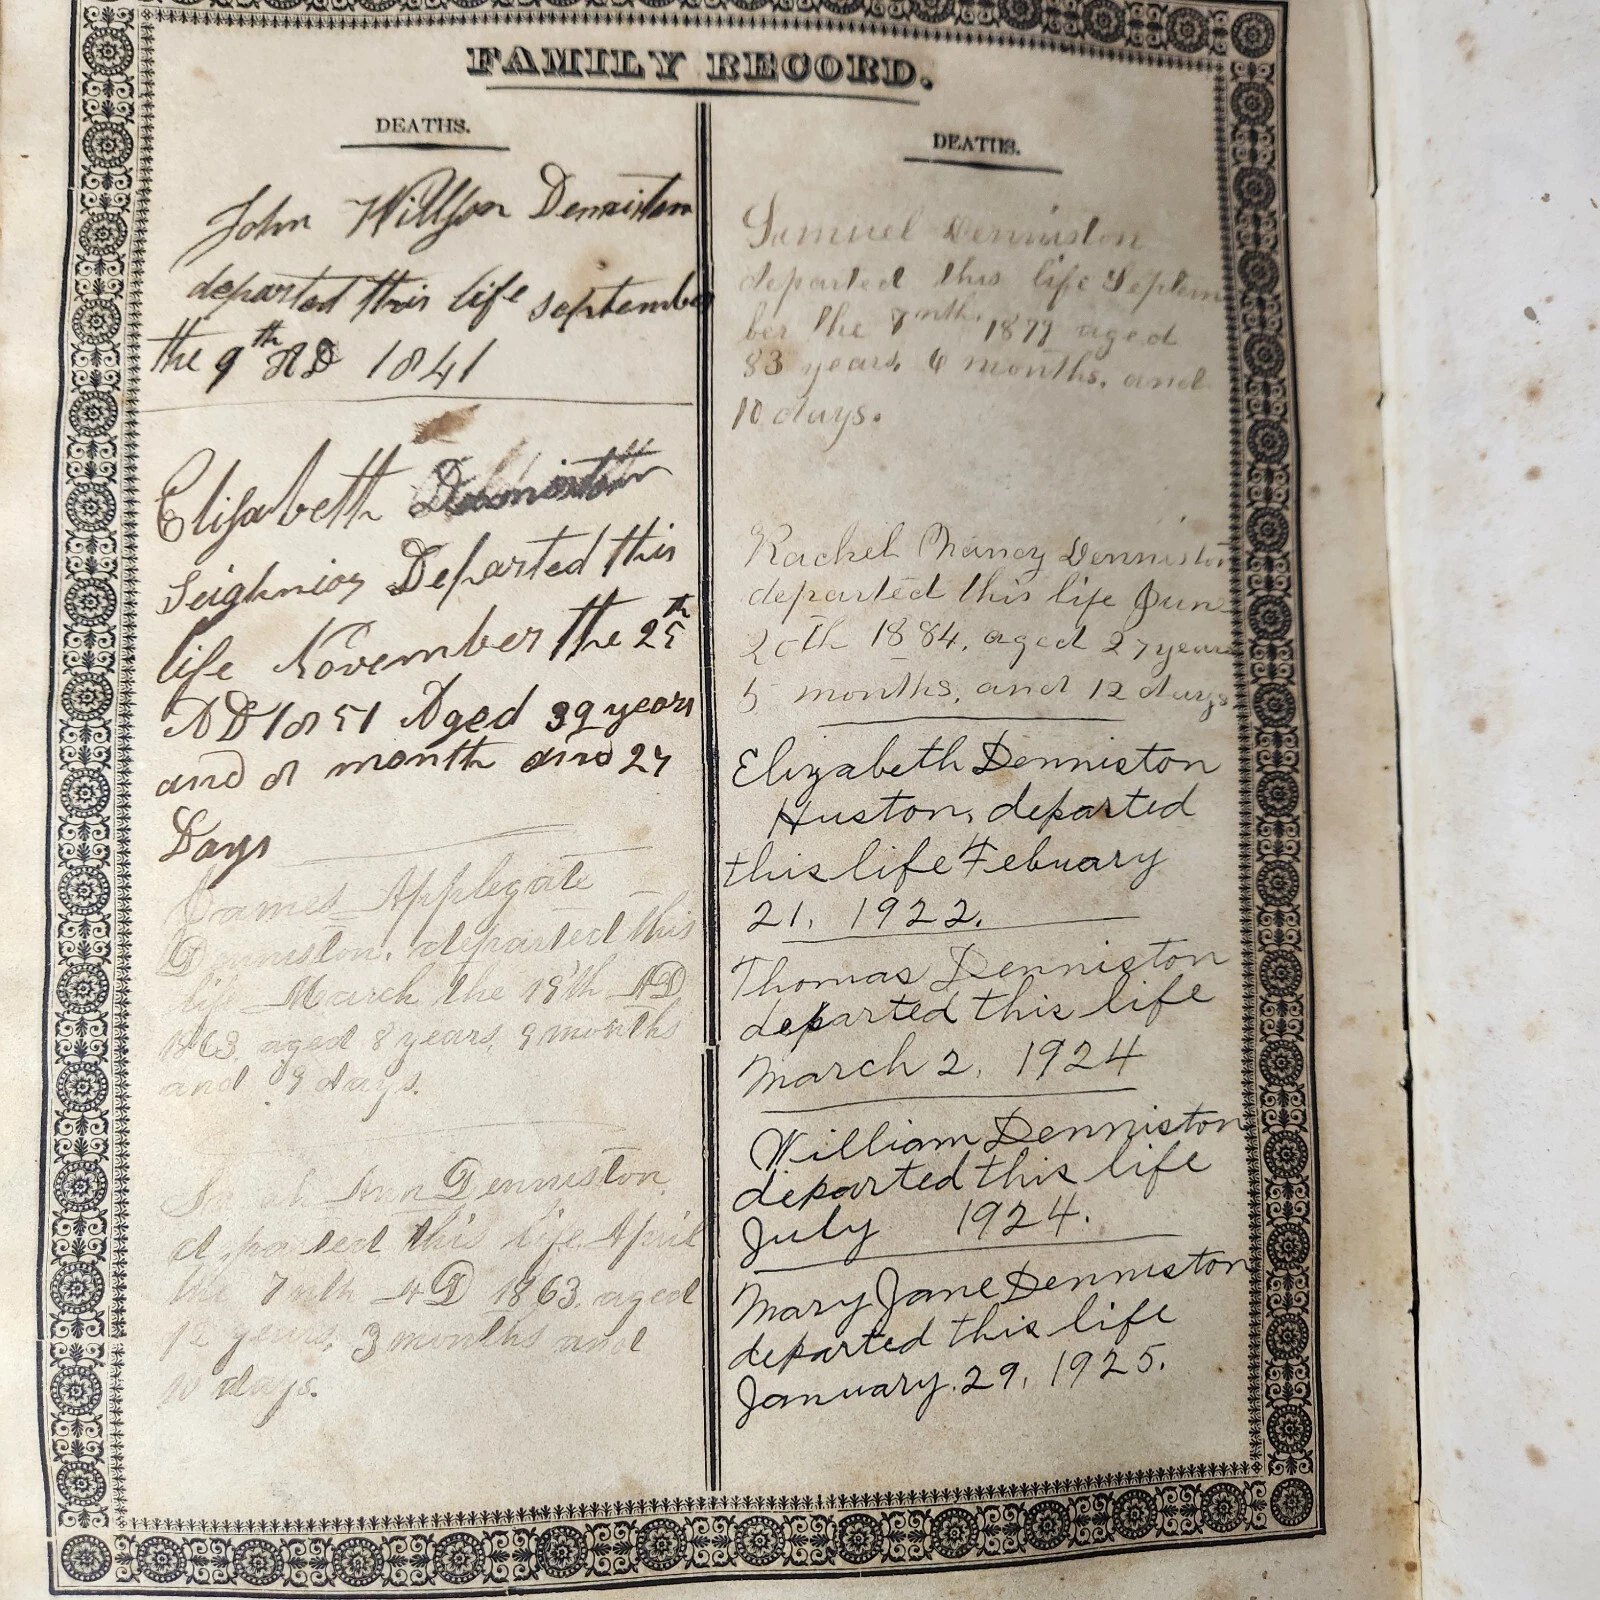 FAMILY RECORD.
DEATHS.
John Willson Denniston
departed this life september
the 9th AD 1841
Elisabeth Denniston
Seighnior Departed this
life November the 25th
AD 1851 Aged 39 years
and month and 27
Days
James Applegate
Denniston, departed this
life March the 18th AD
1863, aged 8 years, 9 months
and 9 days.
Ann Denniston,
departed this life April
the 7nth AD 1863, aged
12 years, 3 months and
10 days.
DEATHS.
Samuel Denniston
departed this life Septem
ber the 7nth, 1877 aged
83 years, 6 months, and
10 days.
Rachel Nancy Denniston
departed this life June
20th 1884, aged 27 years
5 months, and 12 days
Elizabeth Denniston
Huston, departed
this life Febuary
21, 1922.
Thomas Denniston
departed this life
March 2, 1924
William Denniston
departed this life
July 1924.
Mary Jane Denniston
departed this life
January 29, 1925.